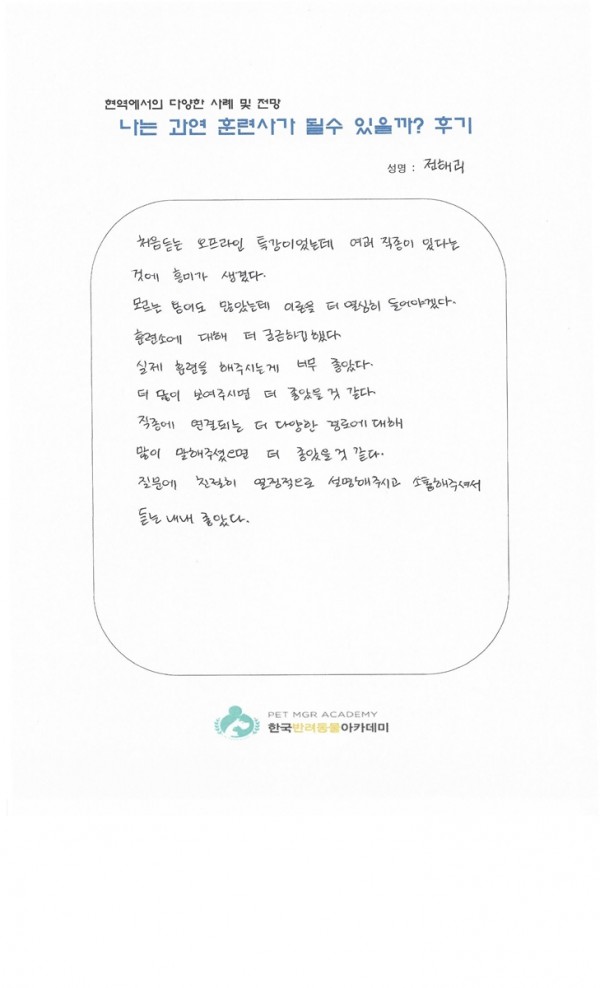 현역에서의 다양한 사례 및 전망
나는 과연 훈련사가 될수 있을까? 후기
성명 : 전해리
처음듣는 오프라인 특강이었는데 여러 직종이 있다는
것에 흥미가 생겼다.
모르는 용어도 많았는데 이론을 더 열심히 들어야겠다.
훈련소에 대해 더 궁금하기도했다
실제 훈련을 해주시는게 너무 좋았다.
더 많이 보여주시면 더 좋았을 것 같다.
직종에 연결되는 더 다양한 경로에 대해
많이 말해주셨으면 더 좋았을 것 같다.
질문에 친절히 열정적으로 설명해주시고 소통해주셔서
듣는 내내 좋았다.
PET MGR ACADEMY
한국반려동물아카데미